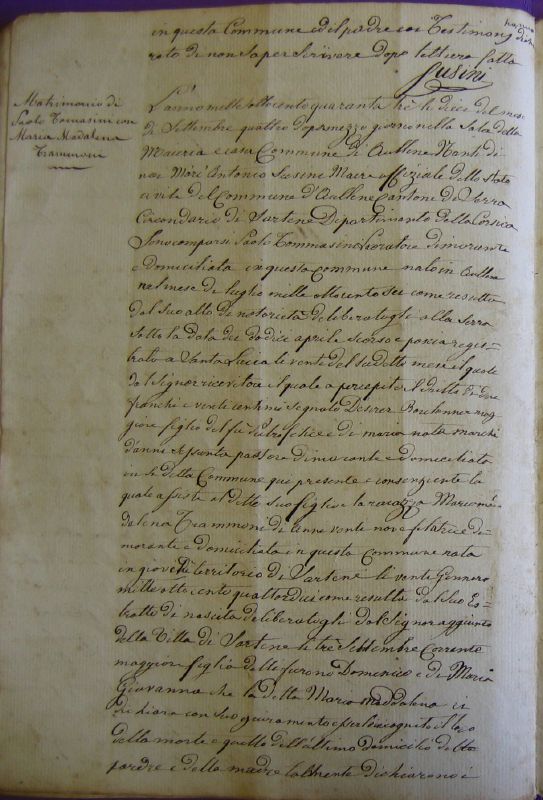 in questa Commune ed il padre coi Testimonj
rato di non saper Scrivere dopo lettura fatta
Susini
Matrimonio di
Paolo Tomasini con
Maria Madalena
Trammoni
L'anno mille otto cento quaranta tre li dieci del mese
di Settembre quattro dopo mezzo giorno nella Sala della
Maieria e casa Commune di Aullene Nanti di
noi Mori Antonio Susini Maire offiziale dello stato
civile del Commune d'Aullene Cantone di Serra
Circondario di Sartene Dipartimento della Corsica
Sono comparso Paolo Tommasini Lavoratore dimorante
e domiciliato in questa commune nato in Aullene
nel mese di luglio mille otto cento sei come resulta
dal suo atto di notorietà deliberatogli alla Serra
Sotto la data dei dodici aprile scorso e poscia regis-
trato a Santa Lucia li venti del sudetto mese il quale
dal Signor ricevitore il quale a percepito il dritti di due
franchi e venti centimi Segnato Desirer mag-
giore figlio del fù Pietro felice e di maria
d'anni passora dimorante e domiciliata
in detta Commune qui presente e consenziente la
quale assiste al detto suo figlio e la ragazza Maria ma-
dalena Trammoni di anni vente nove filatrice di-
morante e domiciliata in questa Commune nata
in territorio di Sartene li vente Gennaro
mille otto cento quattordici come resulta dal suo Es-
tratto di nascita deliberatogli dal Signor aggiunto
della Villa di Sartene li trè Settembre Corrente
maggiore figlia delli furono Domenico e di Maria
Giovanna che la detta Maria Maddalena ci
dichiara con suo giuramento essere incognito il loco
della morte e quello dell'ultimo domicilio del
pardre e della madre dichiarono i